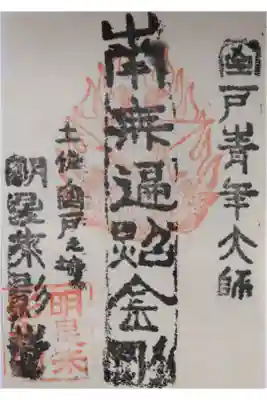 室戸青年大師
南無遍照金剛
土佐室戸之崎
明星来影
明星来